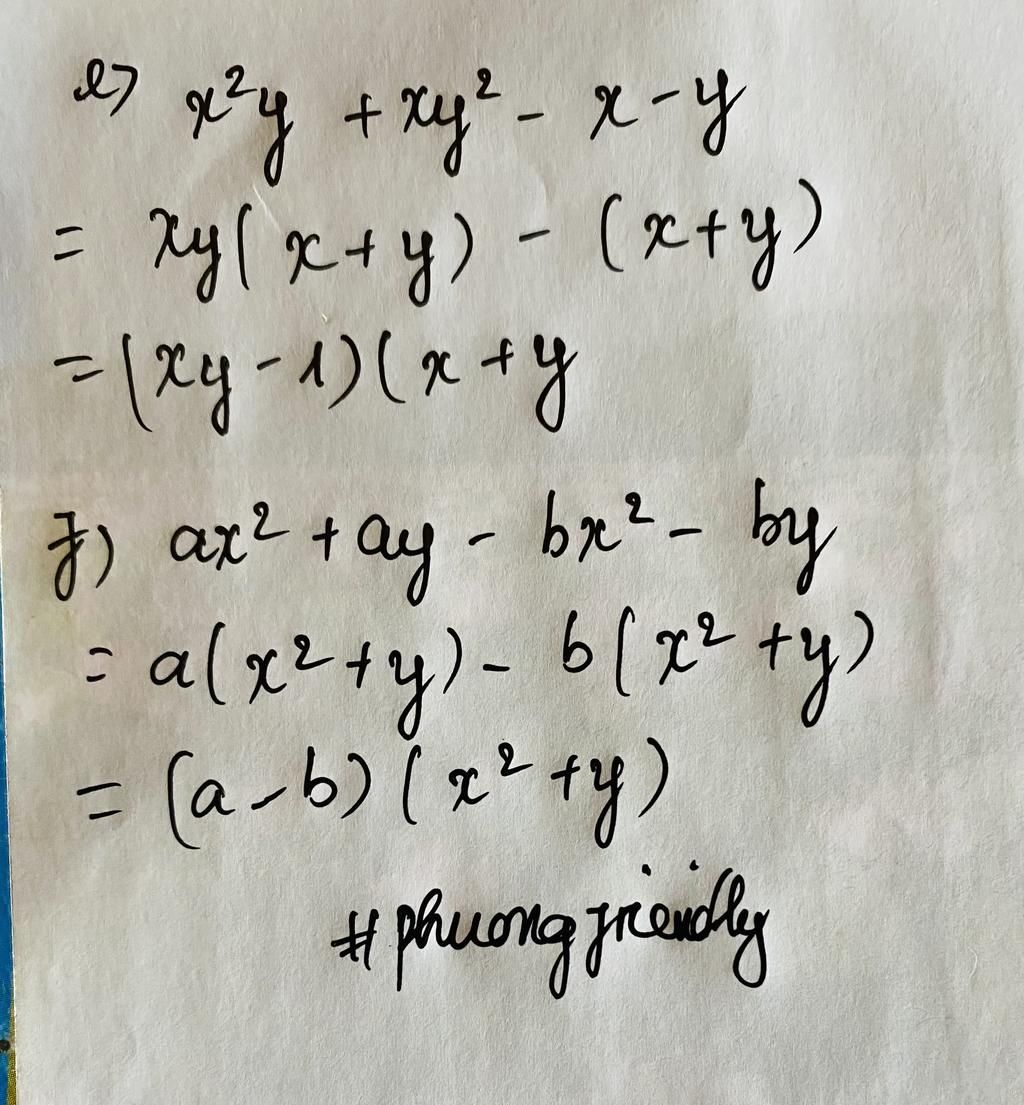 e) x²y + xy² - x - y
= xy( x + y) - (x+y)
= (xy - 1)( x + y
f) ax² + ay - bx² - by
= a( x² + y) - b( x² + y)
= (a - b) ( x² + y)
#phuongfriendly